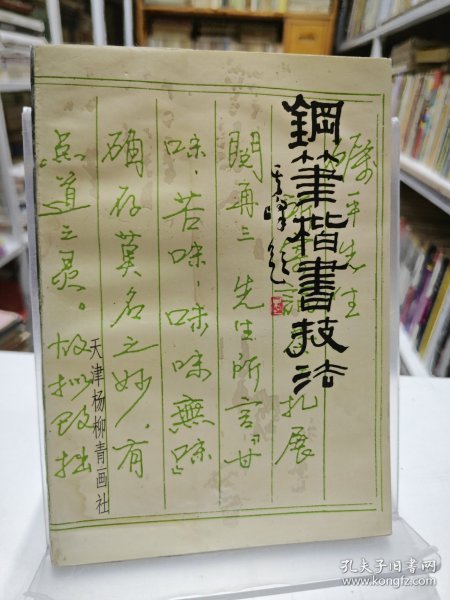 鋼筆楷書技法
题
先生
扎展
閱再三 先生所言「甘
味，苦味，味味無味」
确存莫名之妙，有
点道之灵。故拟致拙
天津杨柳青画社
孔夫子旧书网
www.kongfz.com